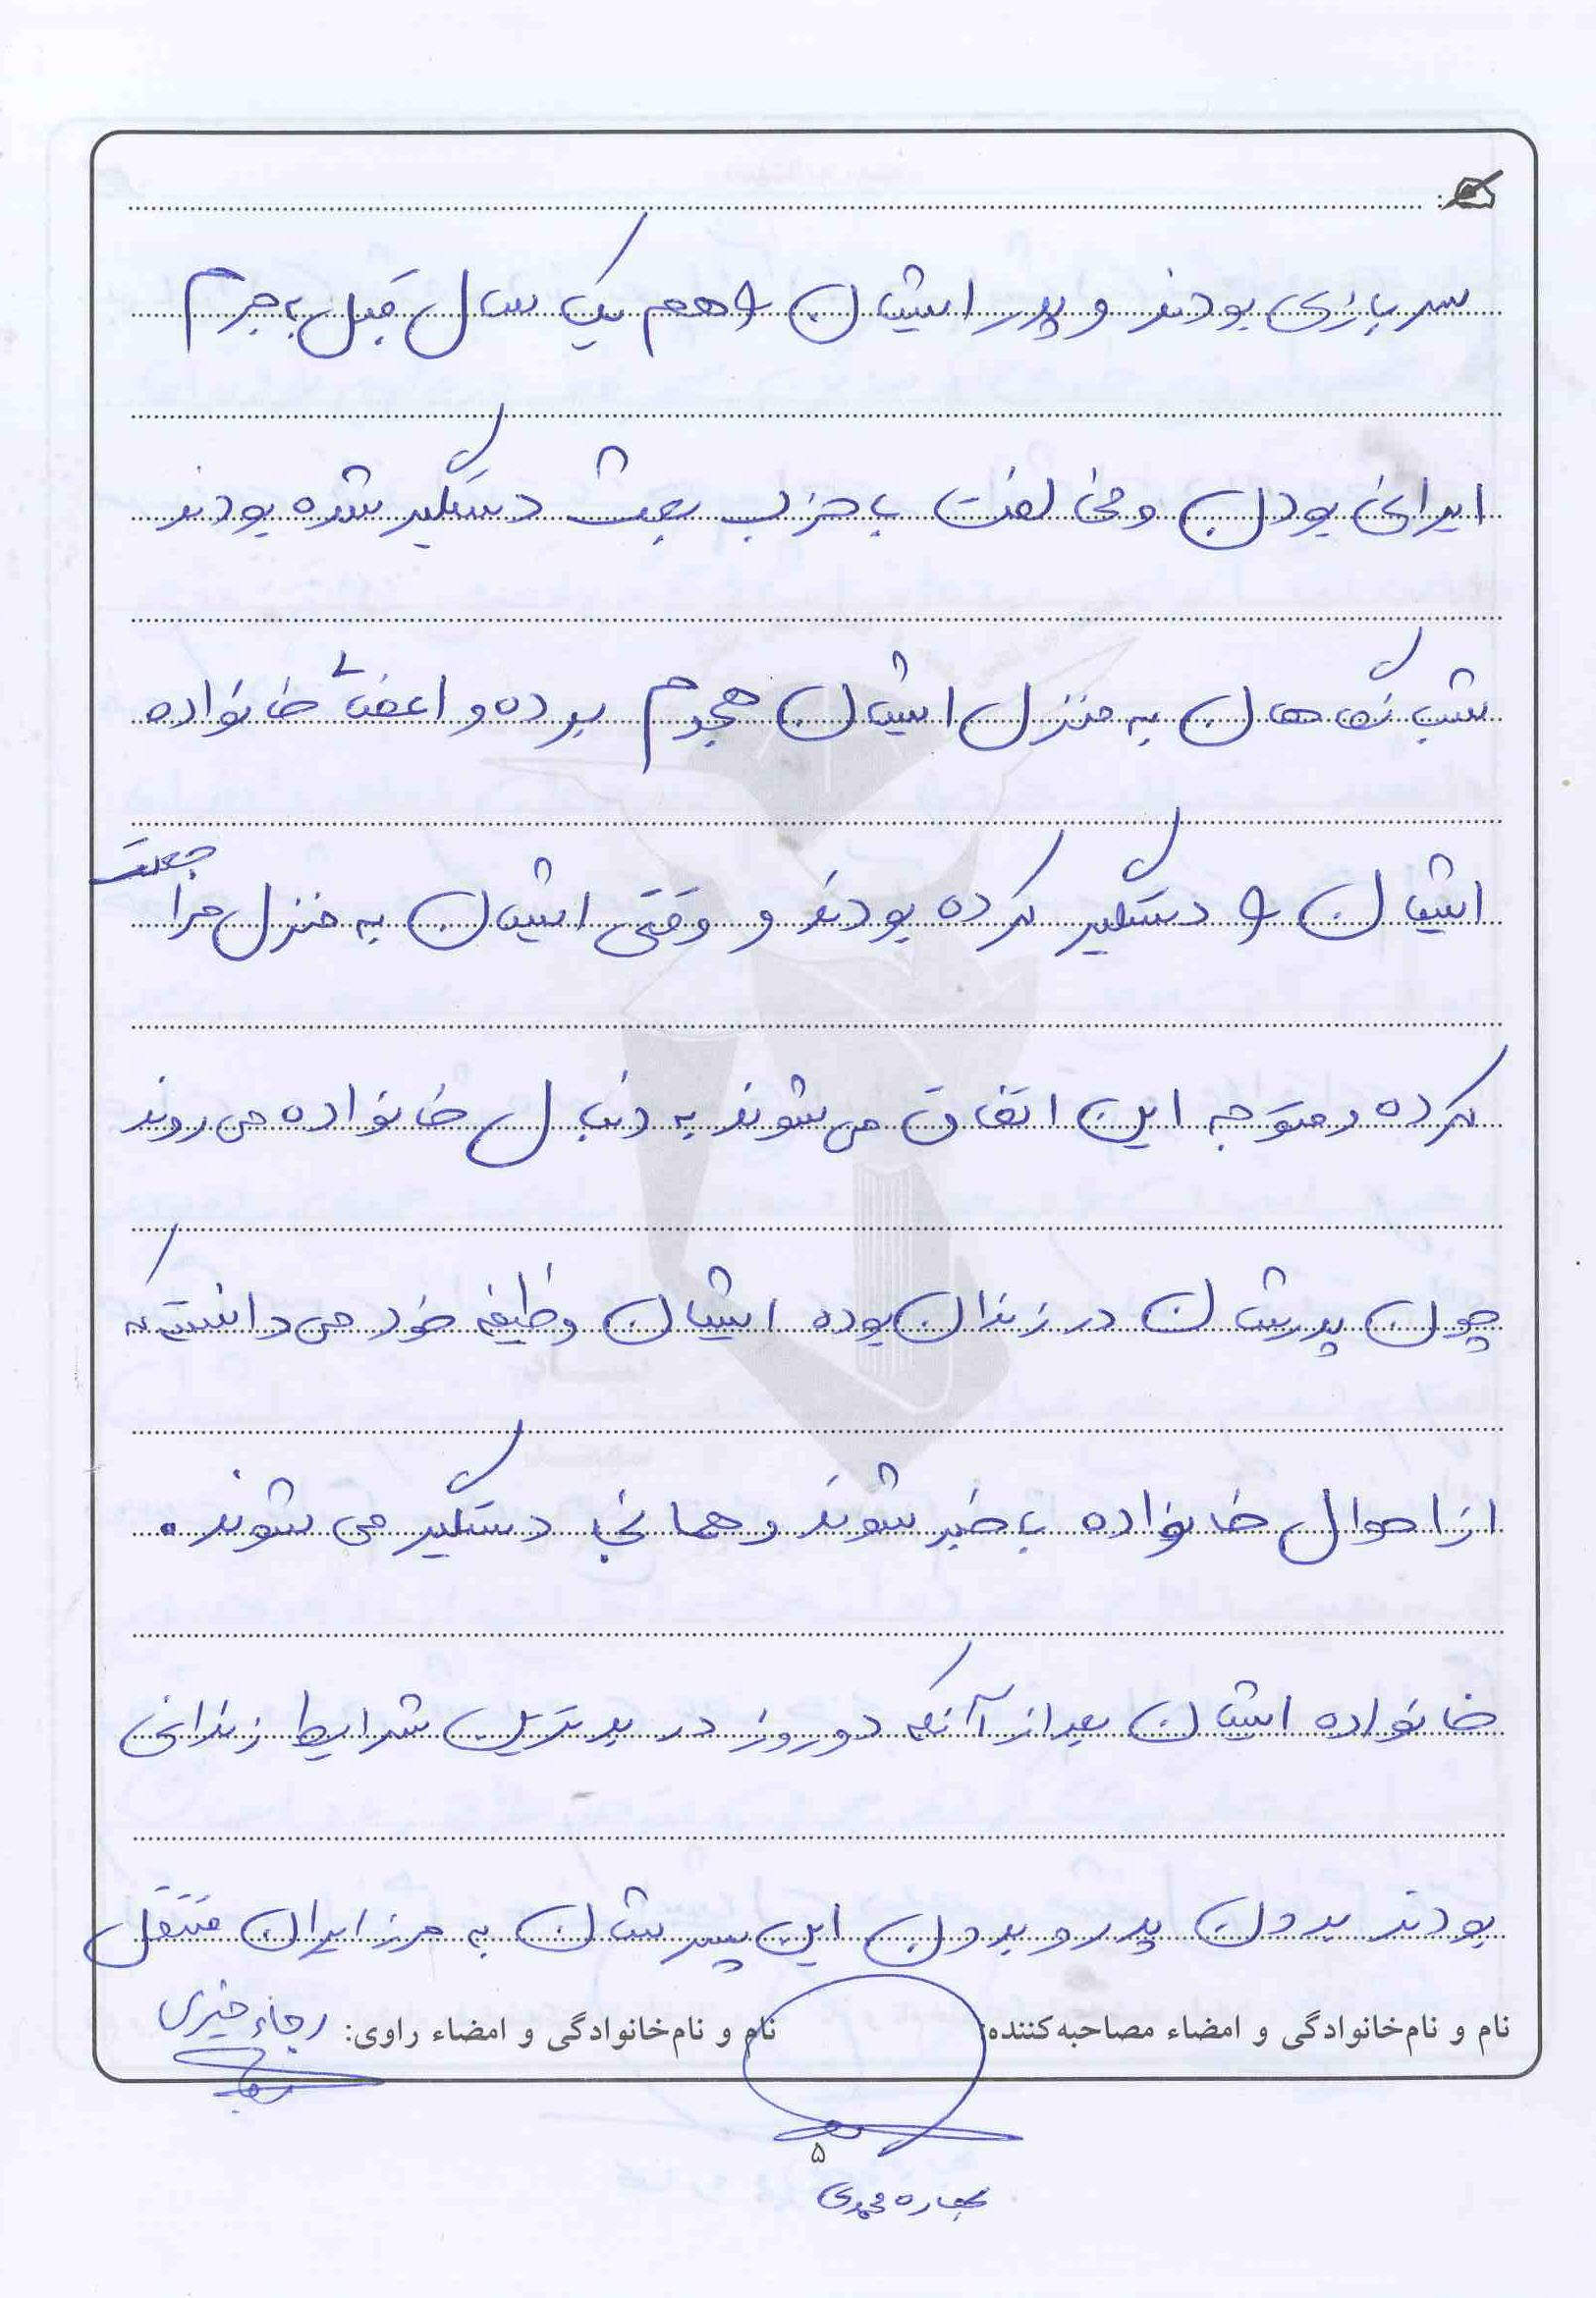 سربازی بودند و پدر ایشان را هم یک سال قبل به جرم
ایرانی بودن و مخالفت با حزب بعث دستگیر شده بودند
شب نگاهان به منزل ایشان هجوم برده و اعضای خانواده
ایشان را دستگیر کرده بودند و وقتی ایشان به منزل مراجعت
کرده و متوجه این اتفاق می شوند به دنبال خانواده می روند
چون پدرشان در زندان بوده ایشان وظیفه خود می دانسته که
از احوال خانواده با خبر شوند و همانجا دستگیر می شوند.
خانواده ایشان بعد از آنکه دو روز در بدترین شرایط زندانی
بودند بدون پدر و بدون این پسرشان به مرز ایران منتقل
نام و نام‌خانوادگی و امضاء مصاحبه‌کننده: نام و نام‌خانوادگی و امضاء راوی: رجاء خیری
۵
بهاره محمدی